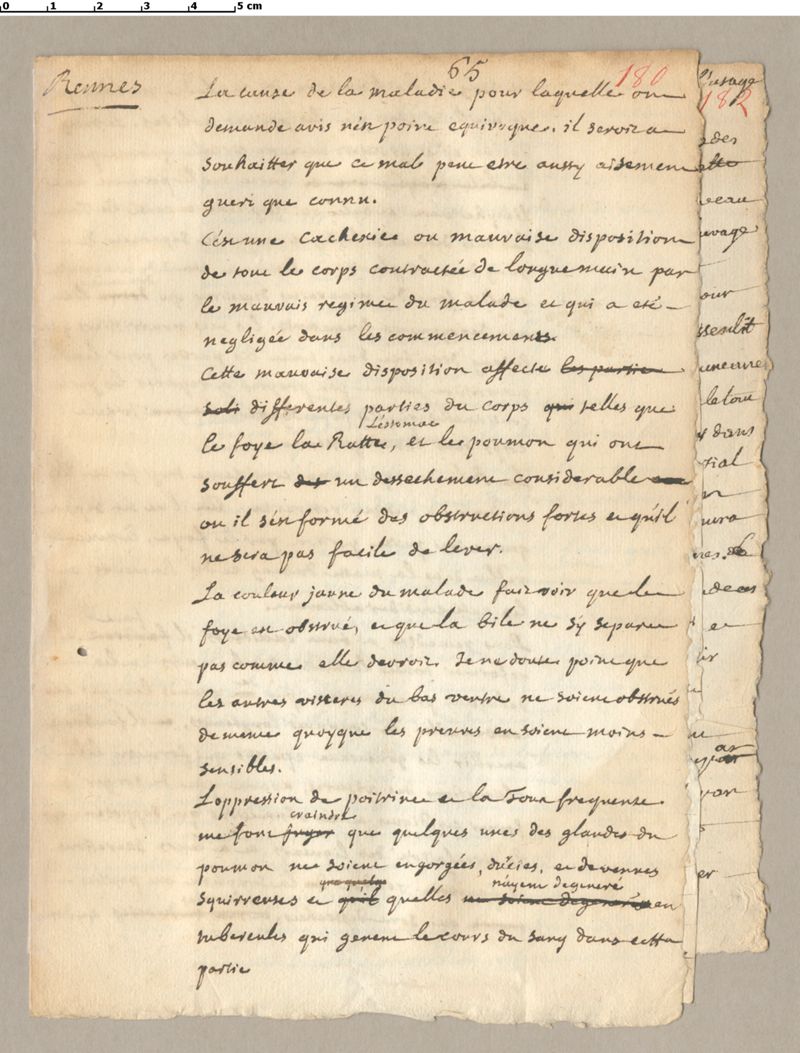 0 1 2 3 4 5 cm
65
Rennes
180
La cause de la maladie pour laquelle on
demande avis n'ést point equivoque. il seroit a
souhaitter que ce mal peut estre aussy aisement
gueri que connu.
C'ést une cachexie ou mauvaise disposition
de tout le corps contractée de longue main par
le mauvais regime du malade et qui a eté
negligée dans les commencements.
Cette mauvaise disposition affecte les partie
soli differentes parties du corps qui telles que
L'estomac
le foye la Ratte, et le poumon qui ont
souffert des un dessechement considerable
ou il s'ést formé des obstructions fortes et qu'il
ne sera pas facile de lever.
La couleur jaune du malade fait voir que le
foye est obstrué, et que la bile ne s'y separe
pas comme elle devroit. Je ne doute point que
les autres visceres du bas ventre ne soient obstrués
de meme quoyque les preuves en soient moins
sensibles.
L'oppression de poitrine et la Toux frequente
craindre
me font juger que quelques unes des glandes du
poumon ne soient engorgées, durcies, et devenues
que quelqu n'ayent degeneré
squirreuses et qu'il quelles ne soient degenerées en
tubercules qui genent le cours du sang dans cette
partie
l'usage
182
des
veau
uvage
our
le tout
dans